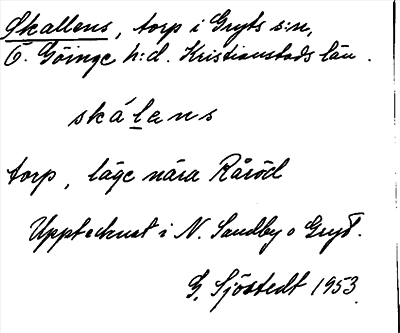 Skallens, torp i Gryts s:n,
Ö. Göinge h:d. Kristianstads län.
skálens
torp, läge nära Råröd
Upptecknat i N. Sandby o Gryt.
G. Sjöstedt 1953